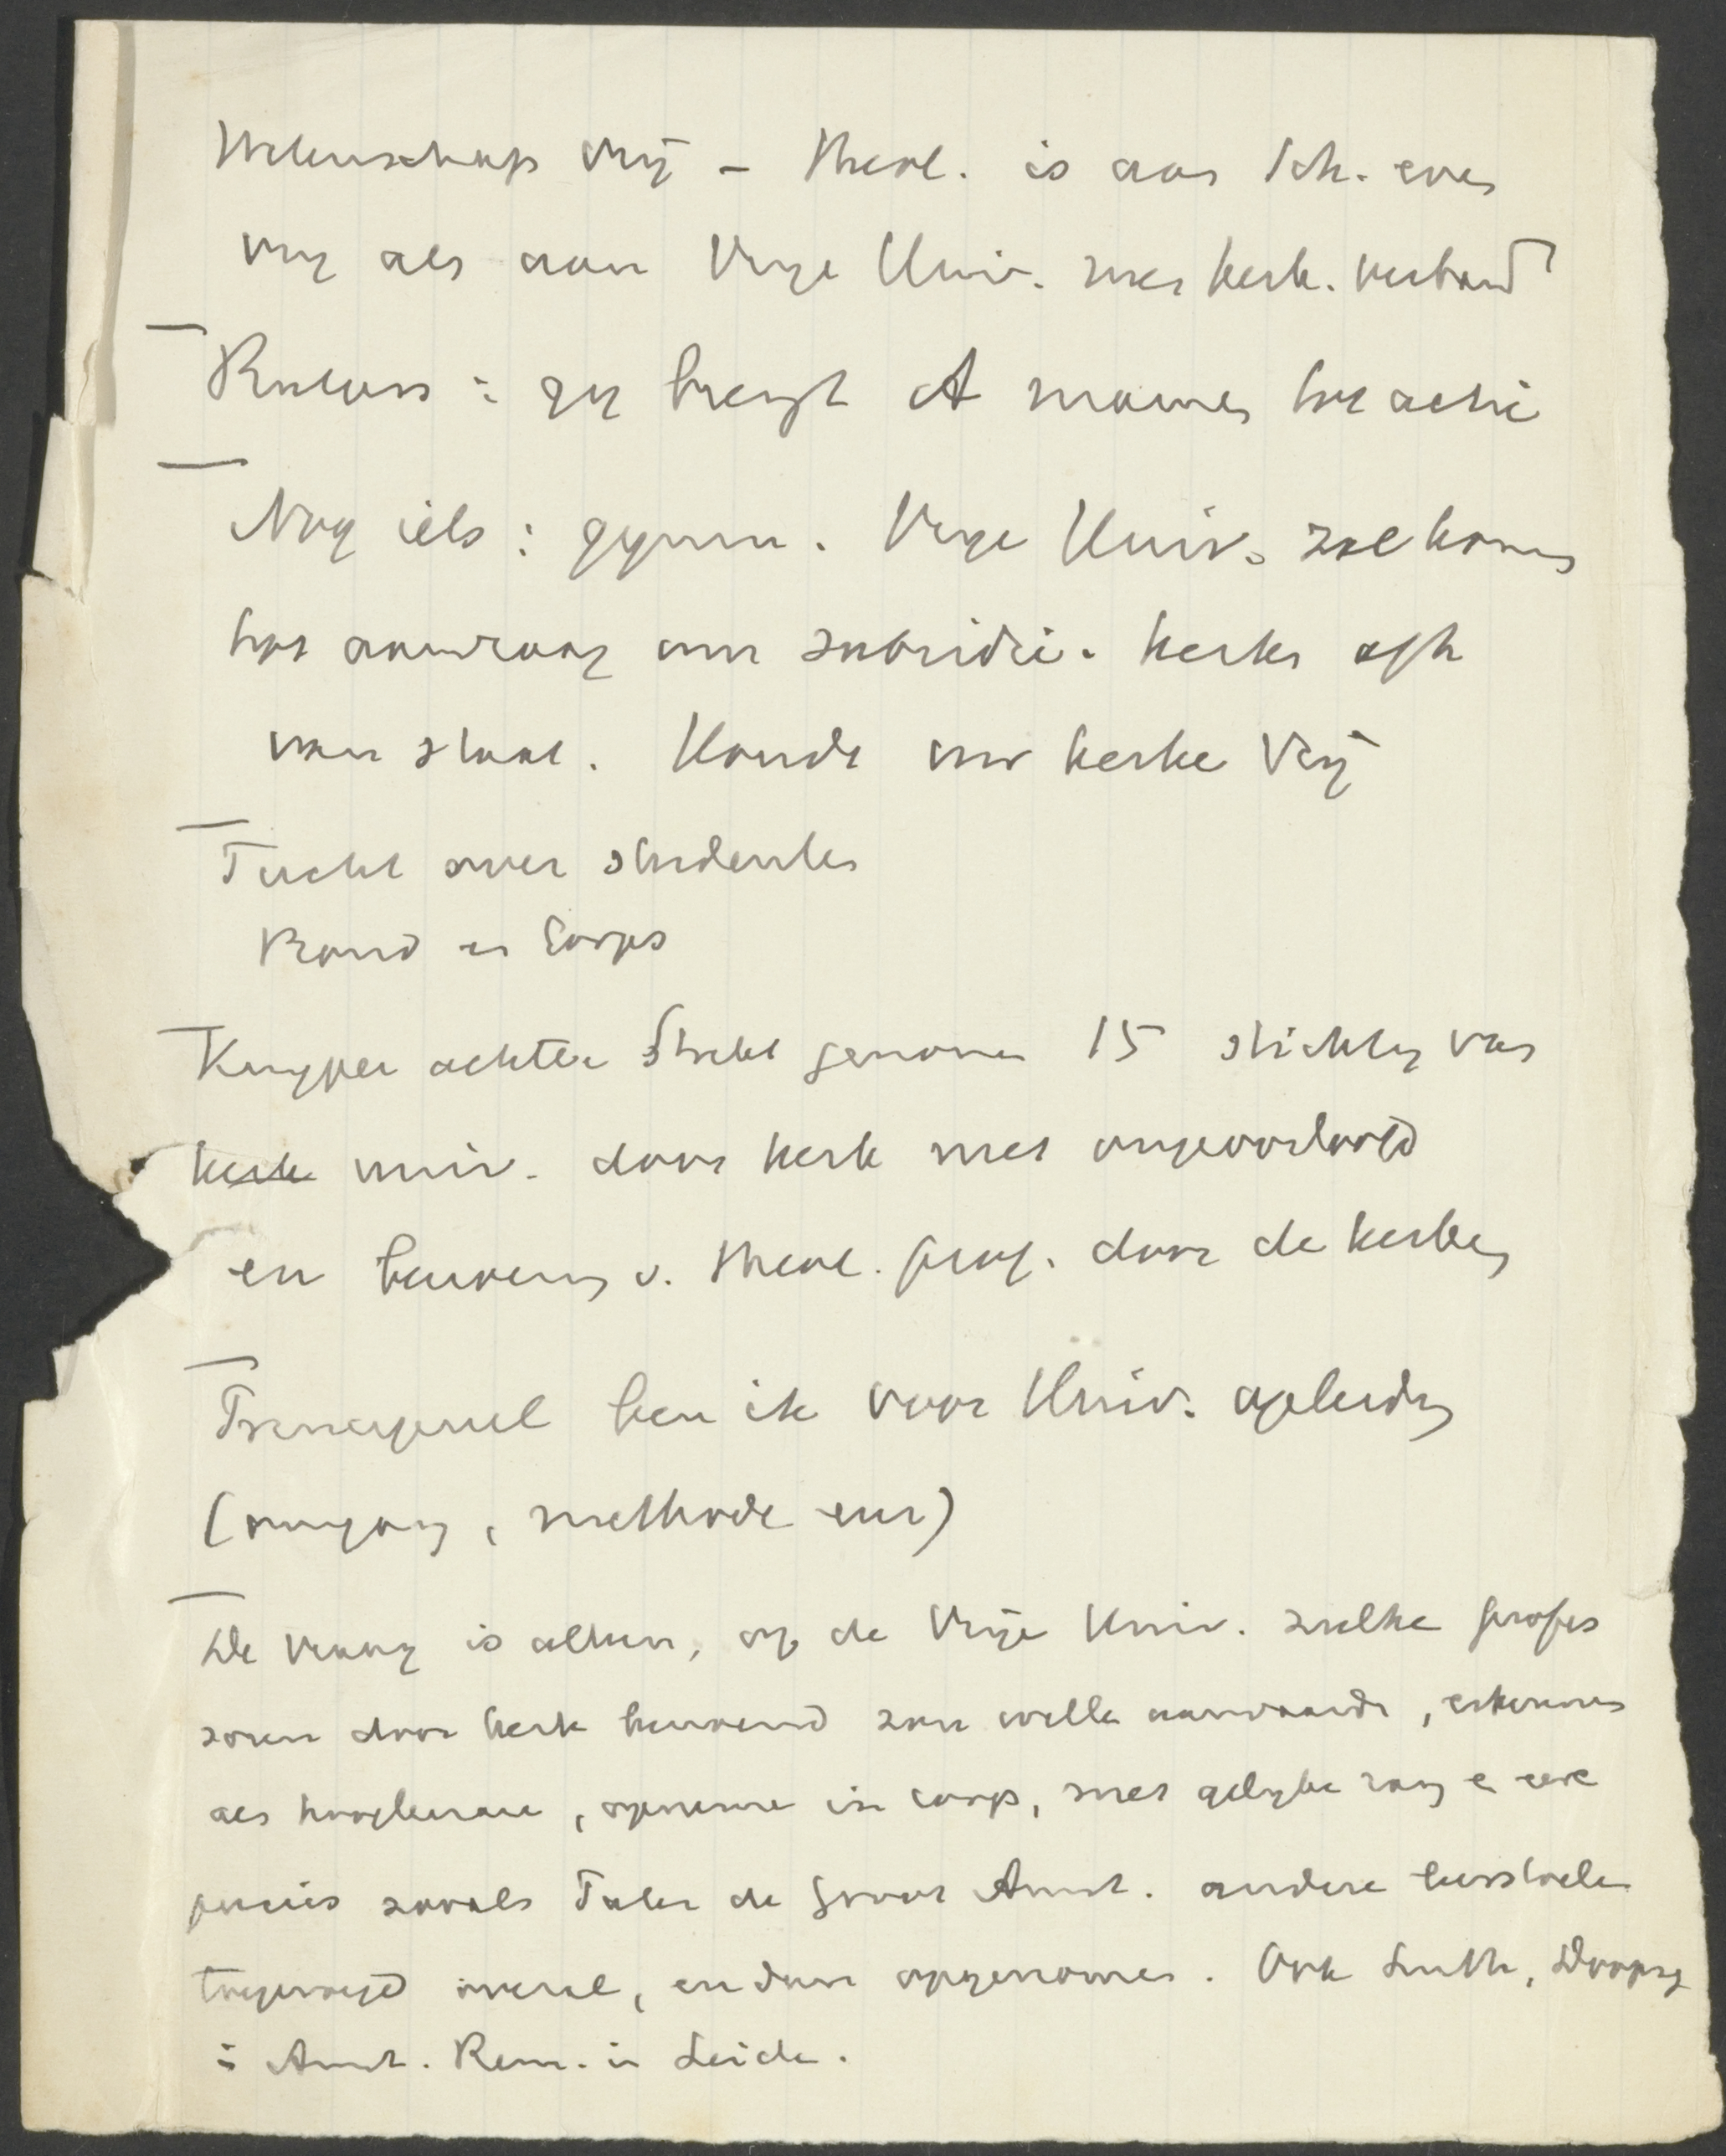 Wetenschap vrij – theol. is aan Sch. even
vrij als aan Vrije Univ. met kerk. verband
Rutgers: zij brengt A mannen tot actie
Nog iets: gymn. Vrije Univ. zal komen
tot aanvraag om subsidie. Kerken afh
van staat. Houdt uw kerke vrij
Tucht over studenten
Bond en Corps
Kuyper achter Strikt genomen 15 stichting van
kerk univ. door kerk niet ongeoorloofd
en benoeming v. theol. prof. door de kerken
Principieel ben ik voor Univ. opleiding
(omgang, methode enz)
De vraag is alleen, op de Vrije Univ. zulke profes
soren door kerk benoemd zou willen aanvaarden, erkennen
als hoogleeraar, opnemen in corps, met gelijke rang e eere
precies zooals Amst. andere leerstoelen
toegevoegd overal, en dan opgenomen. Ook Luth, Doopsg
in Amst. Rem. in Leiden.